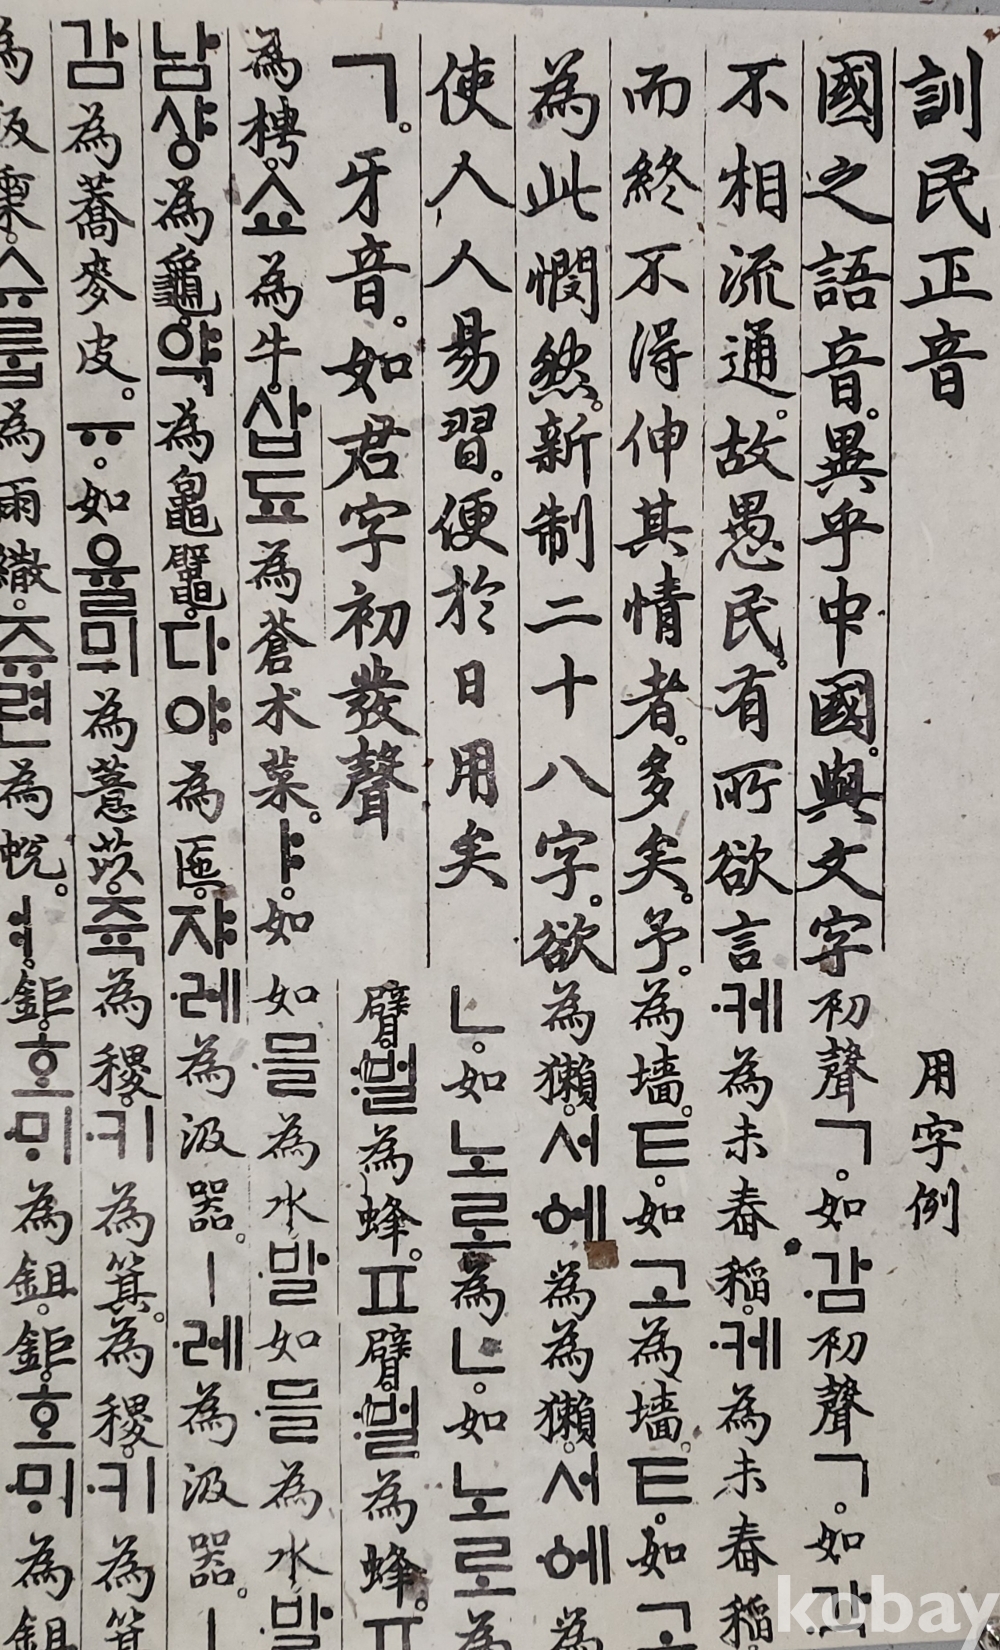 訓民正音
國之語音。異乎中國。與文字
不相流通。故愚民。有所欲言
而終不得伸其情者。多矣。予。
為此憫然。新制二十八字。欲
使人人易習。便於日用矣
ㄱ。牙音。如君字初發聲
為梬。쇼為牛。삽됴為蒼朮菜。ㅑ。如
남샹為龜。약為鼅鼊。다야為匜。쟈
감為蕎麥皮。ㅠ。如율믜為薏苡。쥭
為飯。슈룹為雨繖。쥬련為帨。ㅕ。
用字例
初聲ㄱ。如감初聲ㄱ。如감
케為未舂稻。케為未舂稻
為墻。ㅌ。如고為墻。ㅌ。如고
為獺。서에為為獺。서에為
ㄴ。如노로為ㄴ。如노로為
臂。벌為蜂。ㅍ臂。벌為蜂。ㅍ
如믈為水발如믈為水발
레為汲器。ㅣ레為汲器。ㅣ
為稷。키為箕。為稷。키為箕
鉅。호미為鉏。鉅。호미為鉏
kobay